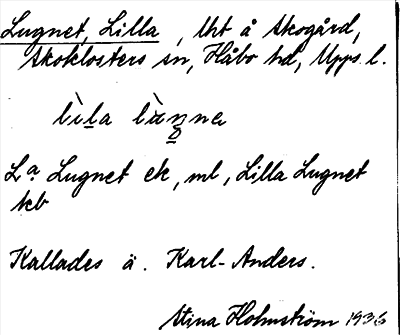 Lugnet, Lilla, lht å Skogård,
Skoklosters sn, Håbo hd, Upps. l.
Lª Lugnet ek, ml, Lilla Lugnet
kb
Kallades ä. Karl-Anders.
Stina Holmström 1936